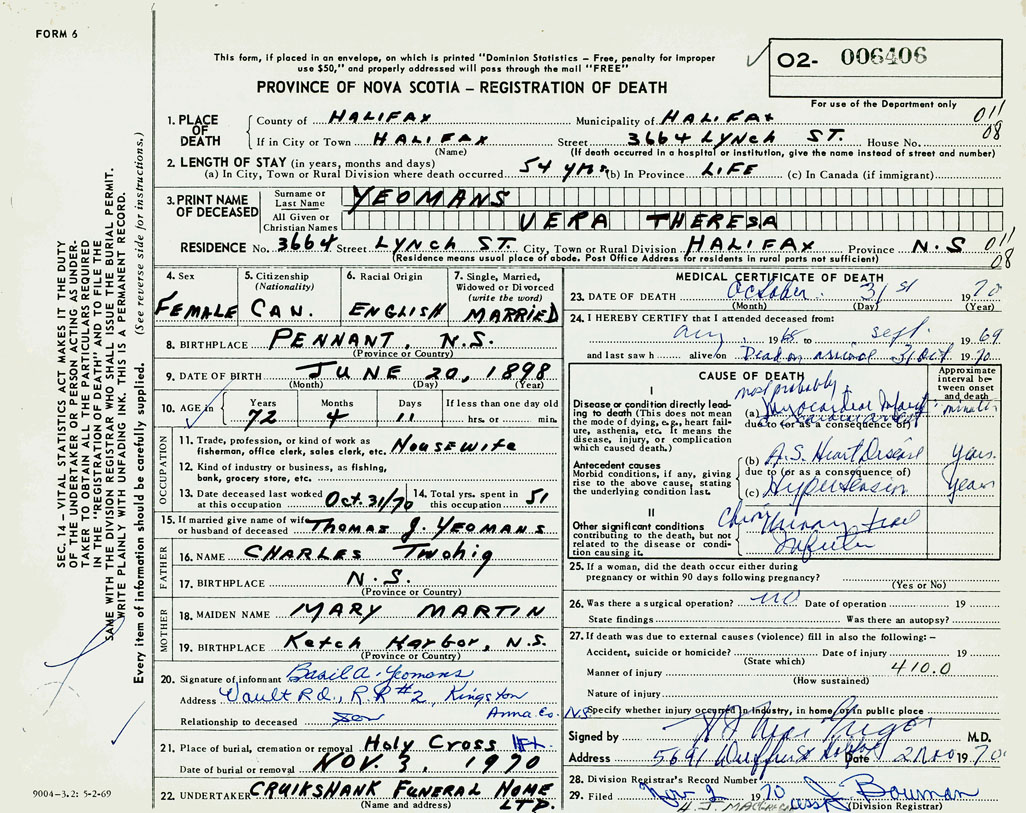 FORM 6
This form, if placed in an envelope, on which is printed "Dominion Statistics – Free, penalty for improper
use $50," and properly addressed will pass through the mail "FREE"
02- 006406
PROVINCE OF NOVA SCOTIA – REGISTRATION OF DEATH
For use of the Department only
1. PLACE OF DEATH County of HALIFAX Municipality of HALIFAX 011
If in City or Town HALIFAX Street 3664 LYNCH ST. House No. 08
(Name) (If death occurred in a hospital or institution, give the name instead of street and number)
2. LENGTH OF STAY (in years, months and days)
(a) In City, Town or Rural Division where death occurred 54 yrs (b) In Province LIFE (c) In Canada (if immigrant)
3. PRINT NAME OF DECEASED
Surname or Last Name YEOMANS
All Given or Christian Names VERA THERESA
RESIDENCE No. 3664 Street LYNCH ST. City, Town or Rural Division HALIFAX Province N.S 011
(Residence means usual place of abode. Post Office Address for residents in rural parts not sufficient) 08
4. Sex FEMALE
5. Citizenship (Nationality) CAN.
6. Racial Origin ENGLISH
7. Single, Married, Widowed or Divorced (write the word) MARRIED
8. BIRTHPLACE PENNANT, N.S.
(Province or Country)
9. DATE OF BIRTH JUNE 20, 1898
(Month) (Day) (Year)
10. AGE in Years Months Days If less than one day old
72 4 11 hrs. or min.
OCCUPATION
11. Trade, profession, or kind of work as
fisherman, office clerk, sales clerk, etc. Housewife
12. Kind of industry or business, as fishing,
bank, grocery store, etc.
13. Date deceased last worked at this occupation Oct. 31/70 14. Total yrs. spent in at this occupation 51
15. If married give name of wife or husband of deceased THOMAS J. YEOMANS
FATHER
16. NAME CHARLES Twohig
17. BIRTHPLACE N.S.
(Province or Country)
MOTHER
18. MAIDEN NAME MARY MARTIN
19. BIRTHPLACE Ketch Harbor, N.S.
(Province or Country)
20. Signature of informant Basil A. Yeomans
Address Vault Rd., R.R #2, Kingston
Anna. Co. N.S
Relationship to deceased Son
21. Place of burial, cremation or removal Holy Cross Hfx
Date of burial or removal NOV. 3, 1970
22. UNDERTAKER CRUIKSHANK FUNERAL HOME LTD.
(Name and address)
MEDICAL CERTIFICATE OF DEATH
23. DATE OF DEATH October 31st 1970
(Month) (Day) (Year)
24. I HEREBY CERTIFY that I attended deceased from:
Aug. 1968 to Sept. 1969
and last saw h alive on Dead on arrival 31 Oct. 1970
CAUSE OF DEATH
Approximate interval between onset and death
I
Disease or condition directly leading to death (This does not mean the mode of dying, e.g., heart failure, asthenia, etc. It means the disease, injury, or complication which caused death.)
most probably
(a) Myocardial minutes
due to (or as a consequence of)
Antecedent causes
Morbid conditions, if any, giving rise to the above cause, stating the underlying condition last.
(b) A.S. Heart Disease years.
due to (or as a consequence of)
(c) Hypertension years
II
Other significant conditions contributing to the death, but not related to the disease or condition causing it.
Chronic Urinary tract
Infection
25. If a woman, did the death occur either during
pregnancy or within 90 days following pregnancy?
(Yes or No)
26. Was there a surgical operation? no Date of operation 19
State findings Was there an autopsy?
27. If death was due to external causes (violence) fill in also the following: –
Accident, suicide or homicide? Date of injury 19
(State which)
Manner of injury 410.0
(How sustained)
Nature of injury
Specify whether injury occurred in industry, in home or in public place
Signed by M.D.
Address 5691 Date 2 Nov 1970
28. Division Registrar's Record Number
29. Filed Nov 2 1970 J. Bowman
(Division Registrar)
SEC. 14 – VITAL STATISTICS ACT MAKES IT THE DUTY
OF THE UNDERTAKER OR PERSON ACTING AS UNDERTAKER
TO OBTAIN ALL THE PARTICULARS REQUIRED
IN THE "REGISTRATION OF DEATH" AND TO FILE THE
SAME WITH THE DIVISION REGISTRAR WHO SHALL ISSUE THE BURIAL PERMIT.
WRITE PLAINLY WITH UNFADING INK. THIS IS A PERMANENT RECORD.
Every item of information should be carefully supplied. (See reverse side for instructions.)
9004-3.2: 5-2-69